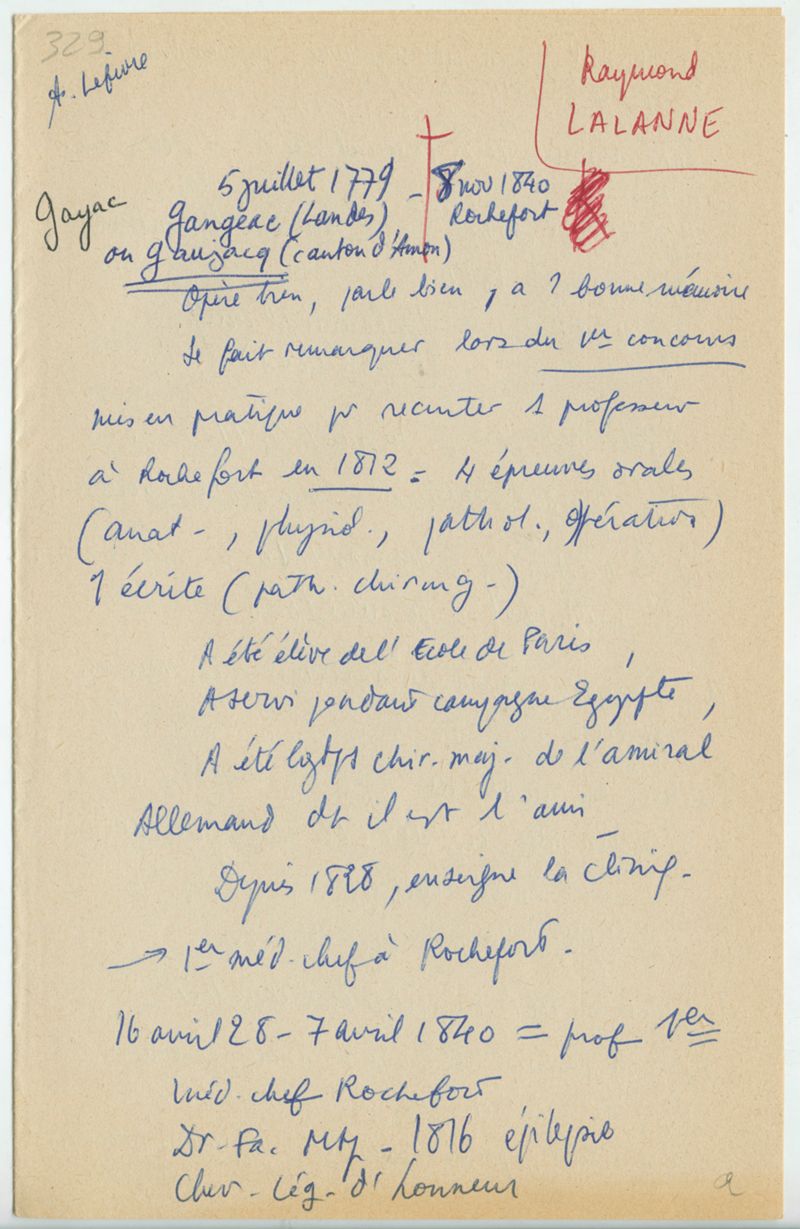 329
A. Lefèvre
Raymond
LALANNE
Gayac
5 juillet 1779 - 8 nov 1840
Gangeac (Landes) Rochefort
ou Gaujacq (canton d'Amon)
Opère bien, parle bien, a 1 bonne mémoire
Se fait remarquer lors du 1er concours
mis en pratique pr recruter 1 professeur
à Rochefort en 1812 = 4 épreuves orales
(anat-, physiol., pathol., opération)
1 écrite (path. chirurg-)
A été élève de l'Ecole de Paris,
A servi pendant campagne Egypte,
A été lgtps chir-maj- de l'amiral
Allemand dt il est l'ami
Depuis 1828, enseigne la cliniq-
→ 1er méd. chef à Rochefort-
16 avril 28 - 7 avril 1840 = prof 1er
méd. chef Rochefort
Dr- Fa. - 1816 épilepsie
Chev- Lég- d'honneur
a